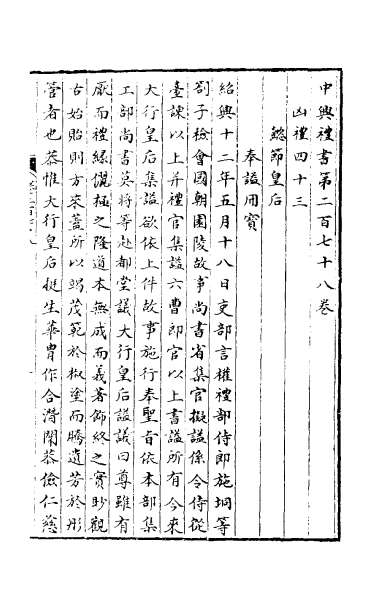 中興禮書第二百七十八卷
凶禮四十三
懿節皇后
奉謚用寶
紹興十二年五月十八日吏部言權禮部侍郎施坰等
劄子檢會國朝園陵故事尚書省集官擬謚係令侍從
臺諫以上并禮官集謚六曹郎官以上書謚所有今來
大行皇后集謚欲依上件故事施行奉聖旨依本部集
工部尚書莫將等赴都堂議大行皇后謚議曰尊雖有
厭而禮緣儷極之隆道本無成而義著飾終之實眇觀
古始貽則方來蓋所以竭茂範於椒塗而騰遺芳於彤
管者也恭惟大行皇后挺生華胄作合潛閑恭儉仁慈